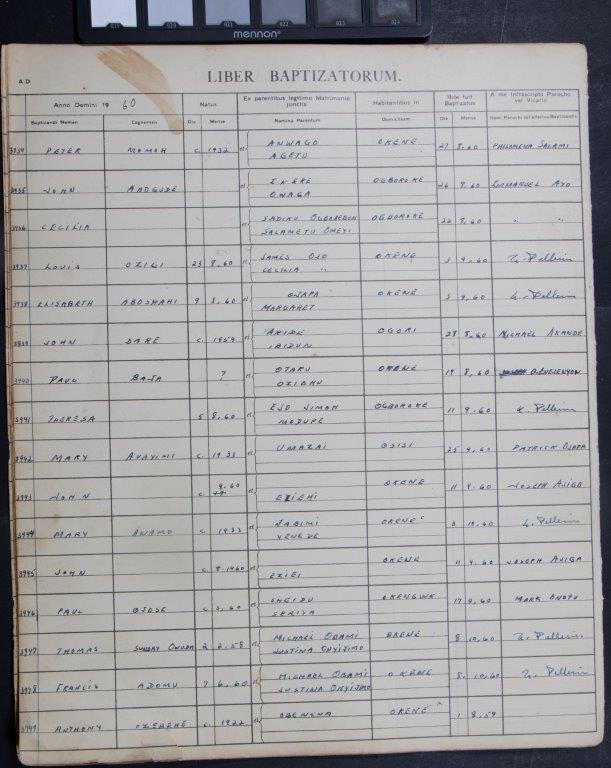 mennon
A D
LIBER BAPTIZATORUM.
Anno Domini 19 60 Natus Ex parentibus legitimo Matrimonio junctis Habitantibus in Rite fuit Baptizatus A me Infrascripto Parocho vel Vicario
Baptizandi Nomen Cognomen Die Mense Nomina Parentum Domicilium Die Mense Nom. Parochi vel alterius Baptizantis
3934 PETER MOMOH c. 1932 et ANWAGO AGETU OKENE 27 8.60 PHILOMENA SALAMI
3935 JOHN et IKERE OWAGA OGBOROKE 26 8.60 EMMANUEL AYO
3936 CECILIA et SADIKU SALAMETU OMEYI OGBOROKE 22 8.60 " "
3937 LOUIS OZIGI 23 8.60 et JAMES OJO CECILIA " OKENE 3 9.60 Pellerin
3938 ELISABETH 9 8.60 et OJAPA MARGARET OKENE 3 9.60 Pellerin
3939 JOHN DARE c. 1959 et ARIDE IBIDUN OGORI 28 8.60 MICHAEL AKANDE
3940 PAUL BAJA ? et OTARU OZIOHU OKENE 19 8.60
3941 THERESA 5 8.60 et EJO JIMOH MODUPE OGBOROKE 11 9.60 Pellerin
3942 MARY c. 1933 et UMAZAI 25 9.60 PATRICK OJAPA
3943 JOHN c. 8.60 et OKENE 11 9.60 JOSEPH AJIGA
3944 MARY ANAMO c. 1933 et JABIMI OKENE 3 10.60 Pellerin
3945 JOHN c. 8.1960 et EZIEI OKENE 11 9.60 JOSEPH AJIGA
3946 PAUL OJOSE c. 3.60 et SERIYA OKENGWE 17 9.60 MARK
3947 THOMAS SUNDAY 2 2.58 et MICHAEL OBAMI JUSTINA ONYIJIMO OKENE 8 10.60 Pellerin
3948 FRANCIS ADOMU 7 6.60 et MICHAEL OBAMI JUSTINA ONYIJIMO OKENE 8. 10.60 Pellerin
3949 ANTHONY c. 1922 et OKENE 1 8.59